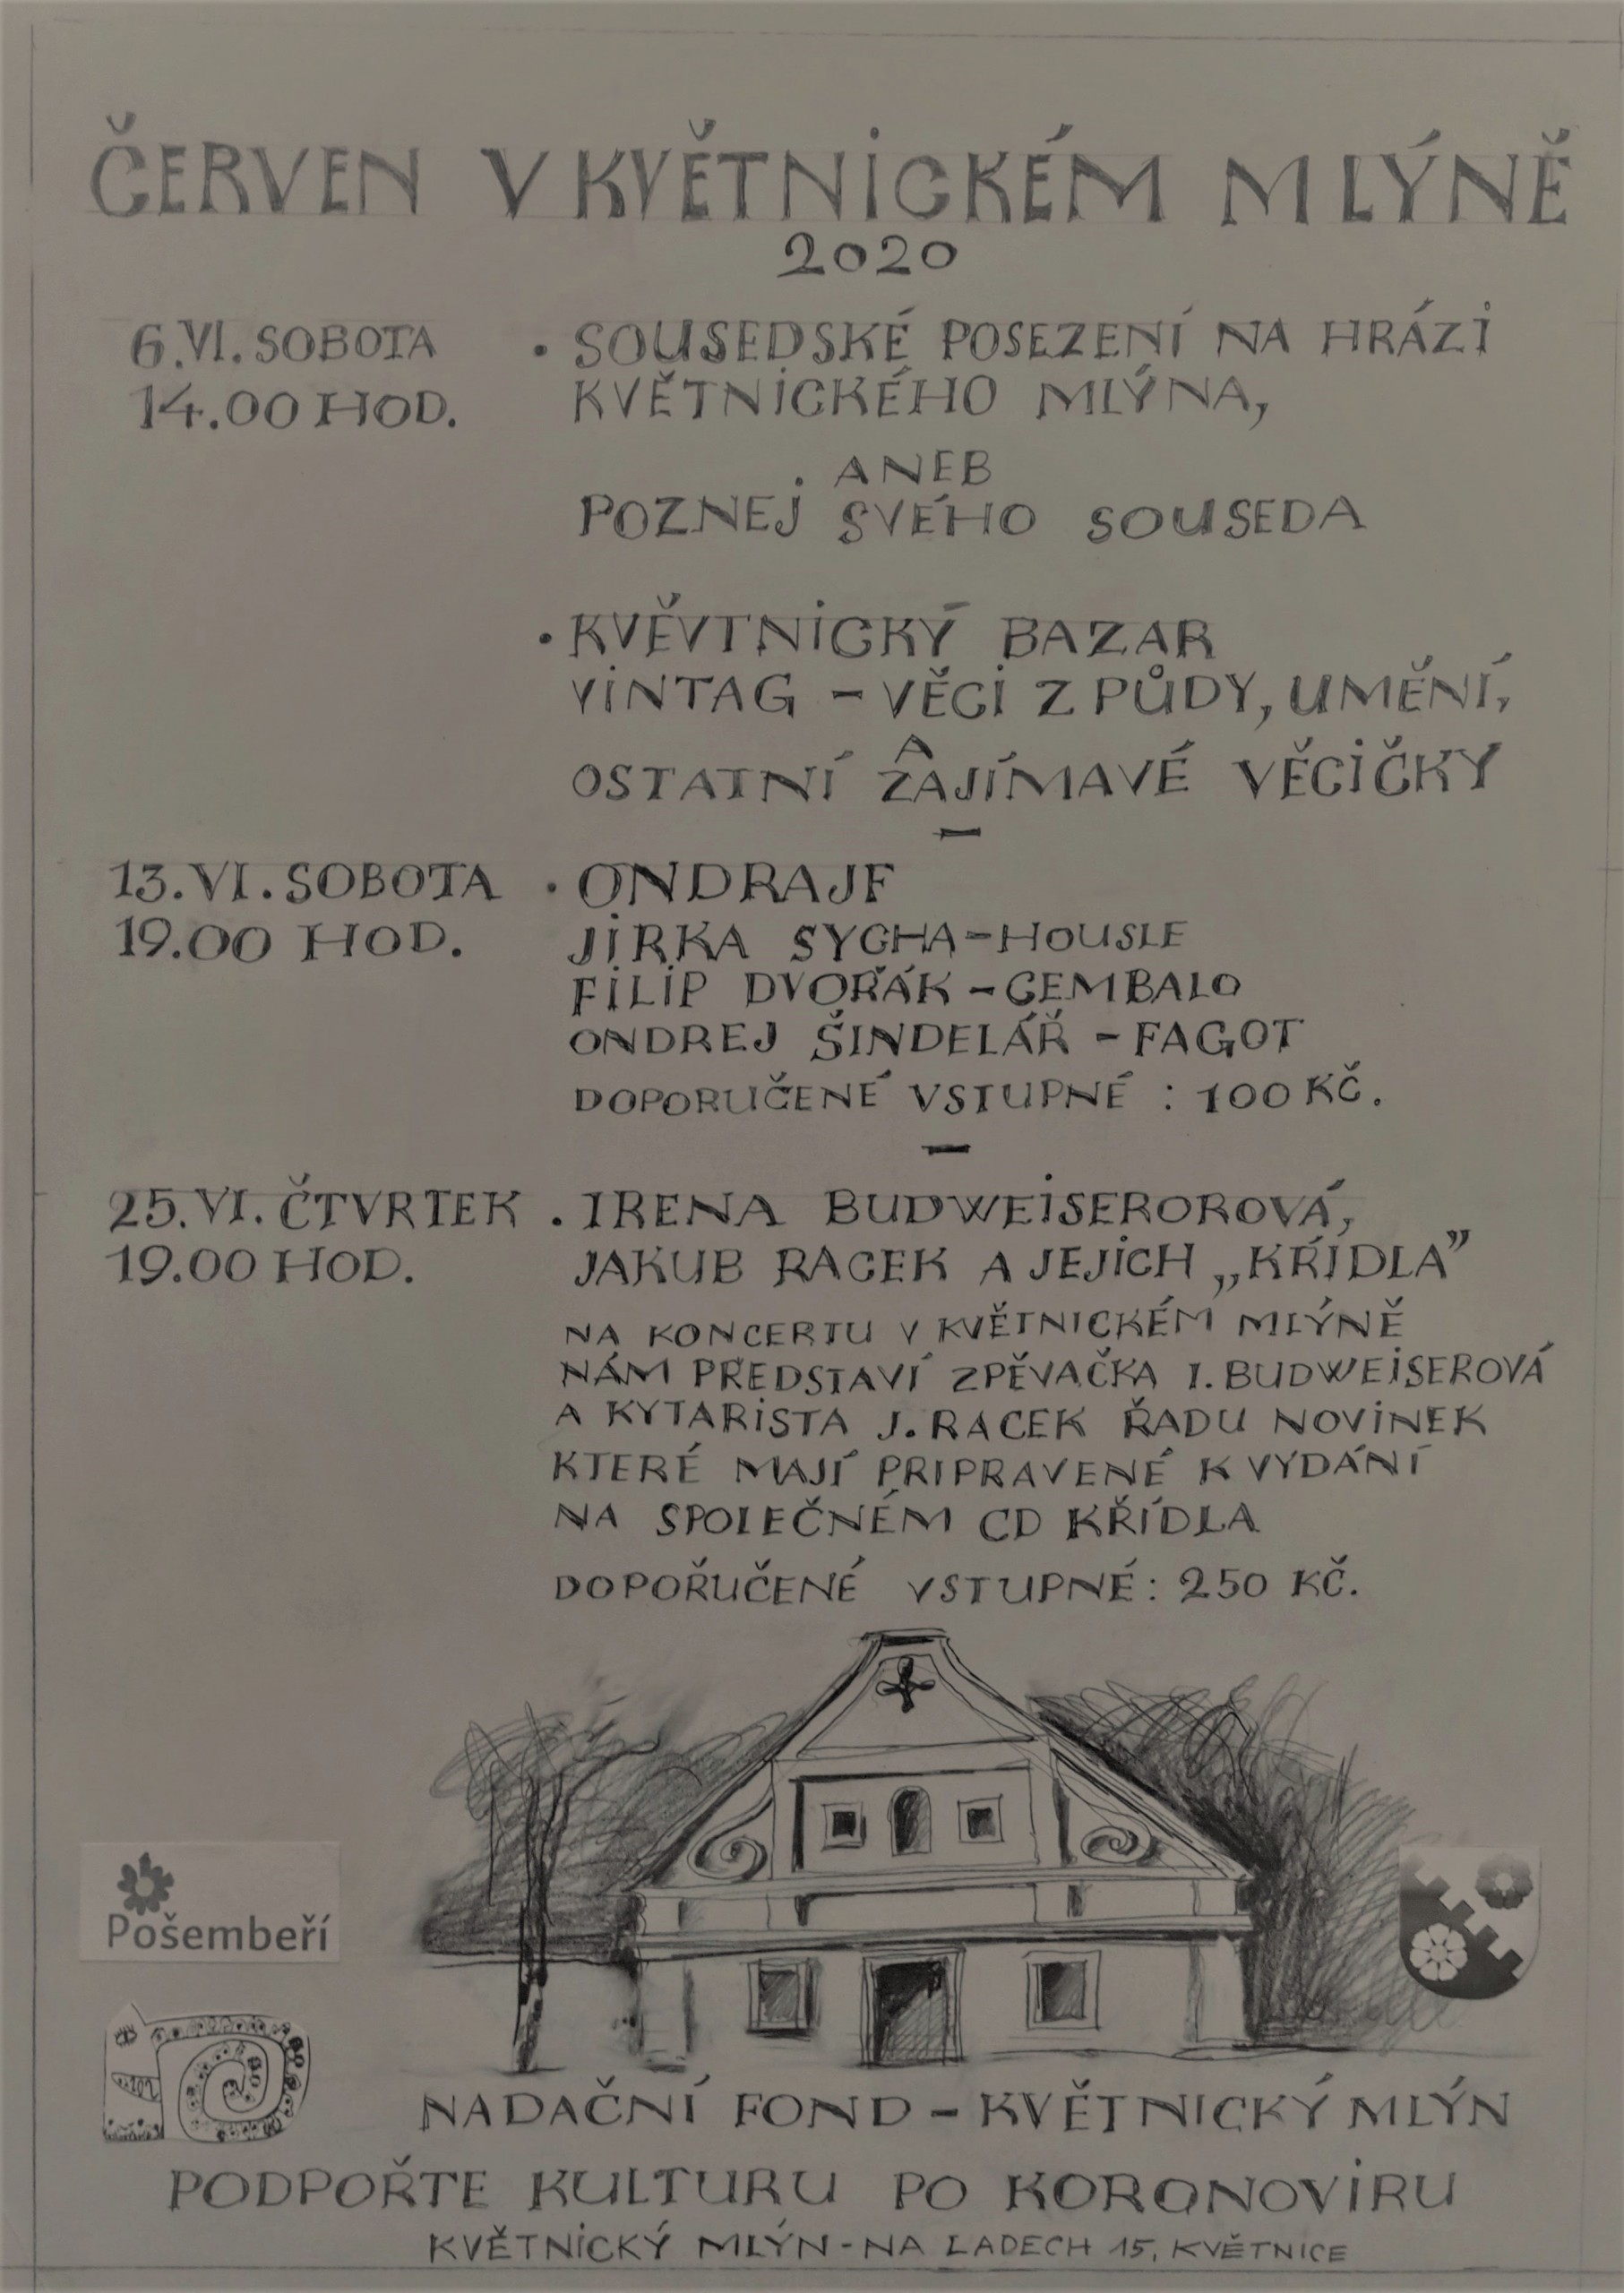 ČERVEN V KVĚTNICKÉM MLÝNĚ
2020
6.VI. SOBOTA
14.00 HOD.
• SOUSEDSKÉ POSEZENÍ NA HRÁZI
KVĚTNICKÉHO MLÝNA,
ANEB
POZNEJ SVÉHO SOUSEDA
• KVĚVTNICKÝ BAZAR
VINTAG – VĚCI Z PŮDY, UMĚNÍ,
A
OSTATNÍ ZAJÍMAVÉ VĚCIČKY
–
13.VI. SOBOTA
19.00 HOD.
• ONDRAJF
JIRKA SYCHA – HOUSLE
FILIP DVOŘÁK – CEMBALO
ONDREJ ŠINDELÁŘ – FAGOT
DOPORUČENÉ VSTUPNÉ : 100 KČ.
–
25.VI. ČTVRTEK
19.00 HOD.
. IRENA BUDWEISEROROVÁ,
JAKUB RACEK A JEJICH „KŘÍDLA”
NA KONCERTU V KVĚTNICKÉM MLÝNĚ
NÁM PREDSTAVÍ ZPĚVAČKA I. BUDWEISEROVÁ
A KYTARISTA J. RACEK ŘADU NOVINEK
KTERÉ MAJÍ PRIPRAVENÉ K VYDÁNÍ
NA SPOLEČNÉM CD KŘÍDLA
DOPOŘUČENÉ VSTUPNÉ: 250 KČ.
Pošembeří
NADAČNÍ FOND – KVĚTNICKÝ MLÝN
PODPOŘTE KULTURU PO KORONOVIRU
KVĚTNICKÝ MLÝN - NA LADECH 15, KVĚTNICE